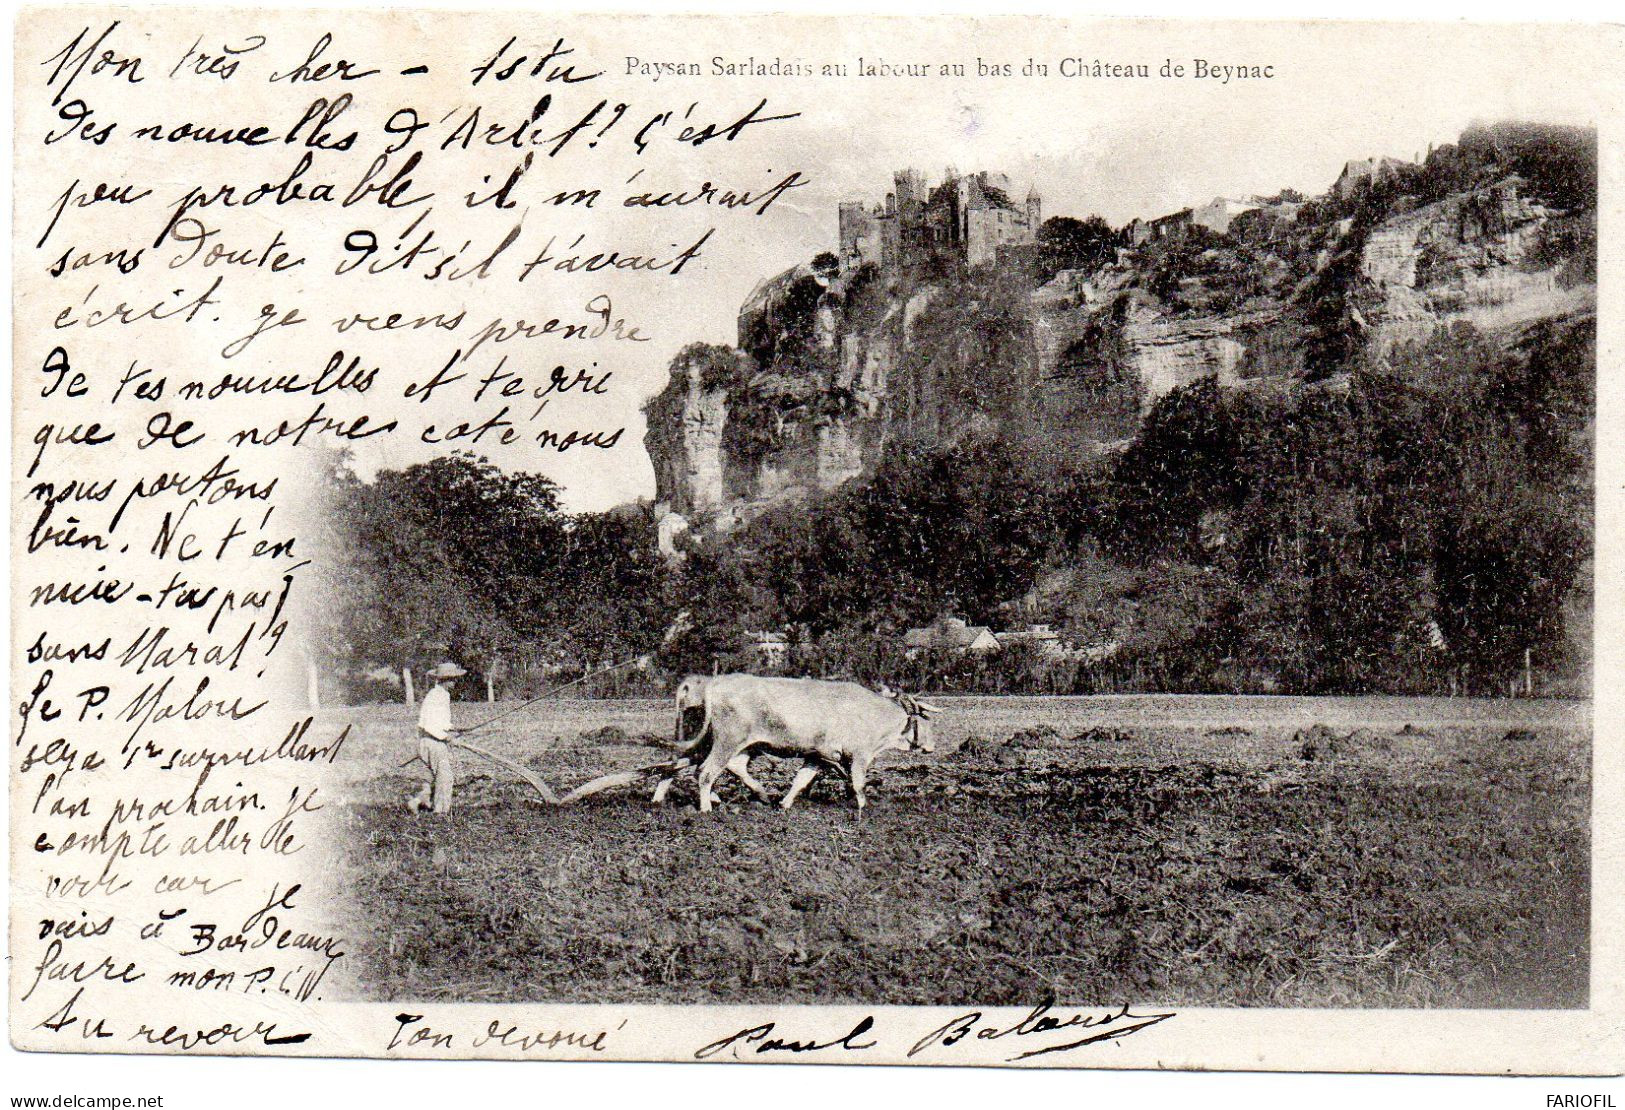 Paysan Sarladais au labour au bas du Château de Beynac
Mon très cher - As tu
des nouvelles d'Arlet? Ç'est
peu probable, il m'aurait
sans doute dit s'il t'avait
écrit. Je viens prendre
de tes nouvelles et te dire
que de notre coté nous
nous portons
bien. Ne t'en
nuie-tus pas
sans Marat?
Le P. Malori
sera 1er surveillant
l'an prochain. Je
compte aller te
voir car je
vais à Bordeaux
faire mon P.C.N.
Au revoir Ton devoué Paul Balard
delcampe.net
FARIOFIL